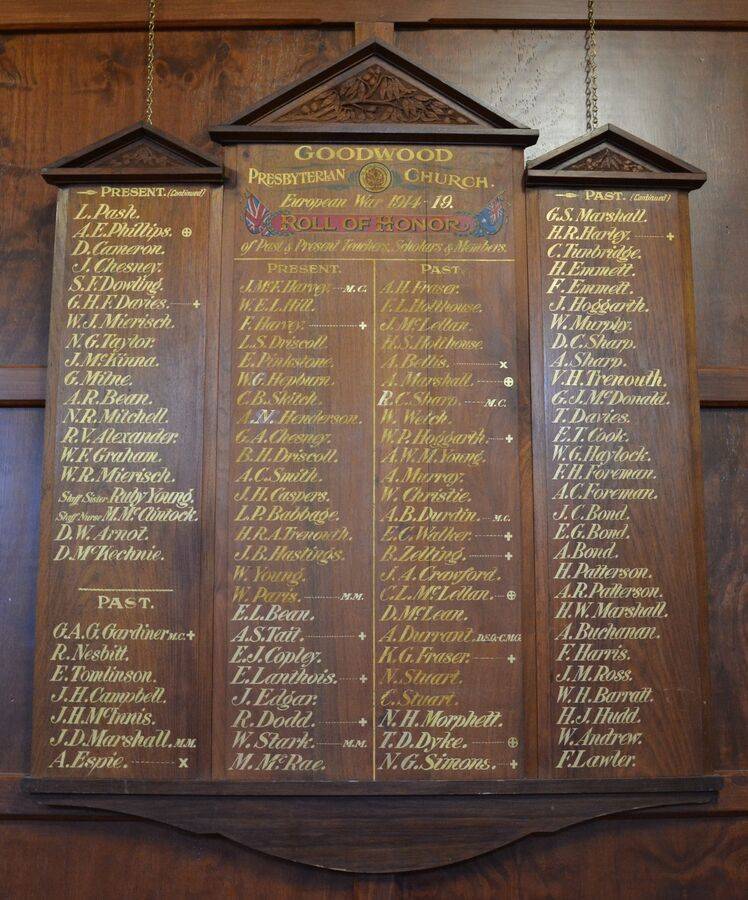 GOODWOOD
PRESBYTERIAN CHURCH.
European War 1914-19.
ROLL OF HONOR
of Past & Present Teachers, Scholars & Members.
PRESENT.
J. McF. Harvey. M.C.
W.E.L. Hill.
F. Harvey. +
L.S. Driscoll.
E. Pinkstone.
W.G. Hepburn.
C.B. Skitch.
A.M. Henderson.
G.A. Chesney.
B.H. Driscoll.
A.C. Smith.
J.H. Caspers.
L.P. Babbage.
H.R.A. Trenouth.
J.B. Hastings.
W. Young.
W. Paris. M.M.
E.L. Bean.
A.S. Tait. +
E.J. Copley.
E. Lanthois. +
J. Edgar.
R. Dodd. +
W. Stark. M.M.
M. McRae.
PRESENT. (Continued)
L. Pash.
A.E. Phillips. ⊕
D. Cameron.
J. Chesney.
S.F. Dowling.
G.H.F. Davies. +
W.J. Mierisch.
N.G. Taylor.
J. McKinna.
G. Milne.
A.R. Bean.
N.R. Mitchell.
R.V. Alexander.
W.F. Graham.
W.R. Mierisch.
Staff Sister Ruby Young.
Staff Nurse M. McClintock.
D.W. Arnot.
D. McKechnie.
PAST.
G.A.G. Gardiner M.C. +
R. Nesbitt.
E. Tomlinson.
J.H. Campbell.
J.H. McInnis.
J.D. Marshall. M.M.
A. Espie. x
PAST.
A.H. Fraser.
F.L. Holthouse.
J. McLellan.
H.S. Holthouse.
A. Bettis. x
A. Marshall. ⊕
R.C. Sharp. M.C.
W. Welch.
W.P. Hoggarth. +
A.W.M. Young.
A. Murray.
W. Christie.
A.B. Durdin. M.C.
E.C. Walker. +
B. Zelling. +
J.A. Crawford.
C.L. McLellan. ⊕
D. McLean.
A. Durrant. D.S.O. C.M.G.
K.G. Fraser. +
N. Stuart.
C. Stuart.
N.H. Morphett.
T.D. Dyke. ⊕
N.G. Simons. +
PAST. (Continued)
G.S. Marshall.
H.R. Harley. +
C. Tunbridge.
H. Emmett.
F. Emmett.
J. Hoggarth.
W. Murphy.
D.C. Sharp.
A. Sharp.
V.H. Trenouth.
G.J. McDonald.
T. Davies.
E.T. Cook.
W.G. Haylock.
F.H. Foreman.
A.C. Foreman.
J.C. Bond.
E.G. Bond.
A. Bond.
H. Patterson.
A.R. Patterson.
H.W. Marshall.
A. Buchanan.
F. Harris.
J.M. Ross.
W.H. Barratt.
H.J. Hudd.
W. Andrew.
F. Lawler.